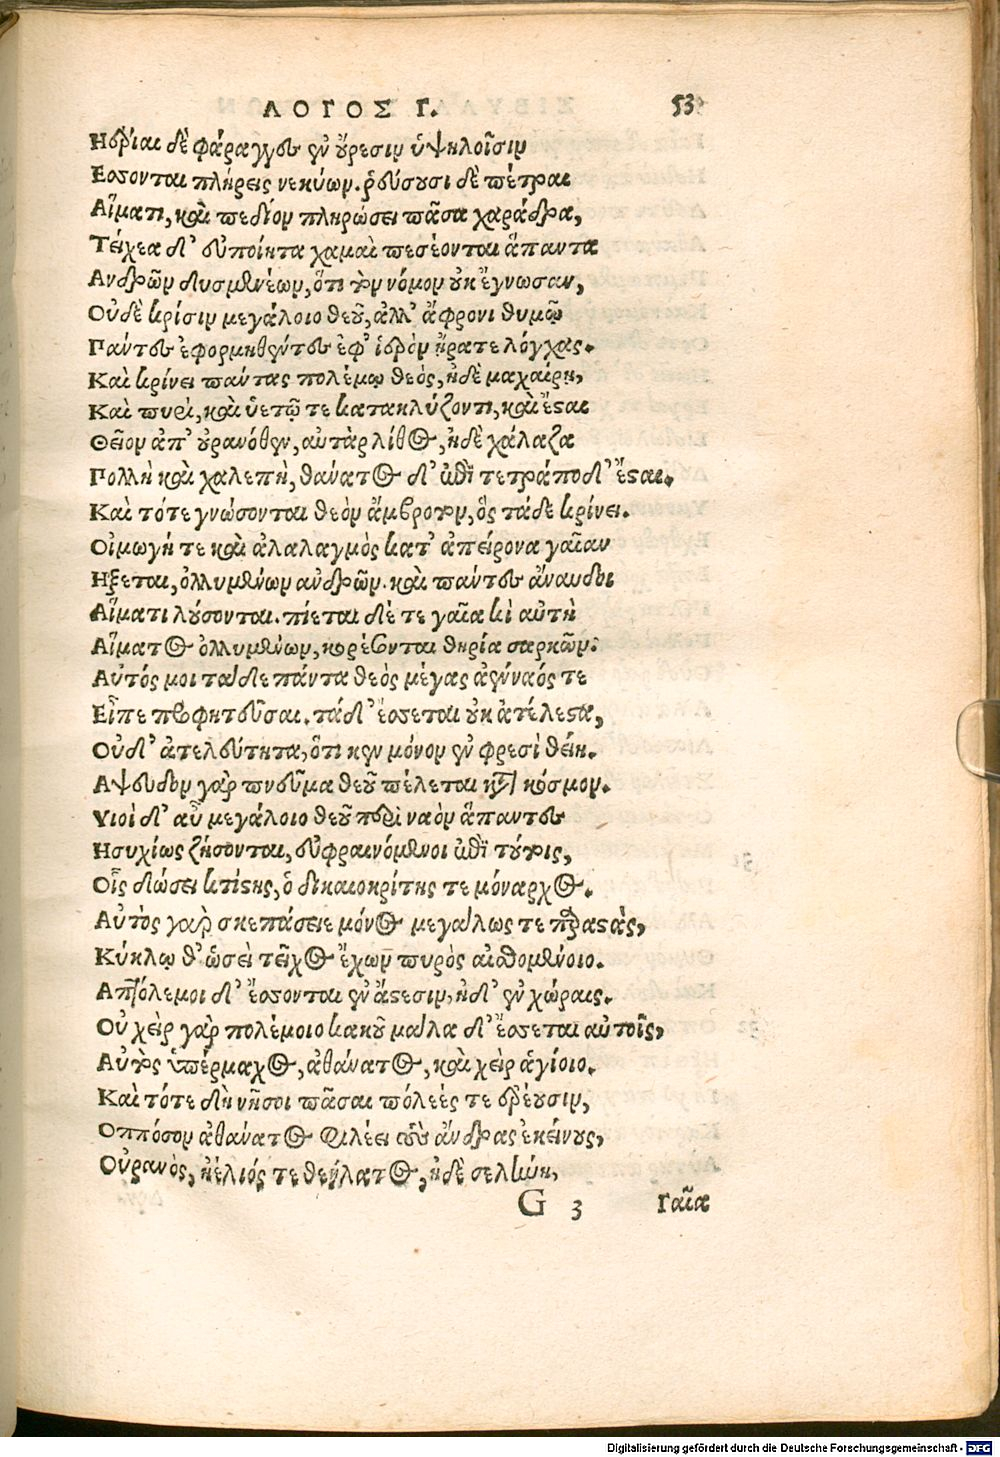 ΛΟΓΟΣ Γ. 53
Ηέριαι δὲ φάραγγες ἐν ὄρεσιν ὑψηλοῖσιν
Εσσονται πλήρεις νεκύων. ῥεύσουσι δὲ πέτραι
Αἵματι, καὶ πεδίον πληρώσει πᾶσα χαράδρα,
Τείχεα δ' εὐποίητα χαμαὶ πεσέονται ἅπαντα
Ανδρῶν δυσμενέων, ὅτι τὸν νόμον οὐκ ἔγνωσαν,
Οὐδὲ κρίσιν μεγάλοιο θεοῦ, ἀλλ' ἄφρονι θυμῷ
Πάντες ἐφορμηθέντες ἐφ' ἱερὸν ᾔρατε λόγχας.
Καὶ κρίνει πάντας πολέμῳ θεὸς, ἠδὲ μαχαίρῃ,
Καὶ πυρὶ, καὶ ὑετῷ τε κατακλύζοντι, καὶ ἔσαι
Θεῖον ἀπ' οὐρανόθεν, αὐτὰρ λίθος, ἠδὲ χάλαζα
Πολλὴ καὶ χαλεπὴ, θάνατος δ' ἐπὶ τετράποδ' ἔσαι.
Καὶ τότε γνώσονται θεὸν ἄμβροτον, ὃς τάδε κρίνει.
Οἰμωγή τε καὶ ἀλαλαγμὸς κατ' ἀπείρονα γαῖαν
Ηξεται, ὀλλυμένων ἀνδρῶν. καὶ πάντες ἄναυδοι
Αἵματι λούσονται. πίεται δέ τε γαῖα καὶ αὐτὴ
Αἵματος ὀλλυμένων, κορέσονται θηρία σαρκῶν.
Αὐτός μοι τάδε πάντα θεὸς μέγας ἀέναός τε
Εἶπε προφητεῦσαι. τάδ' ἔσσεται οὐκ ἀτέλεστα,
Οὐδ' ἀτελεύτητα, ὅτι κεν μόνον ἐν φρεσὶ θείη.
Αψευδον γὰρ πνεῦμα θεοῦ πέλεται κατὰ κόσμον.
Υἱοὶ δ' αὖ μεγάλοιο θεοῦ περὶ ναὸν ἅπαντες
Ησυχίως ζήσονται, εὐφραινόμενοι ἐπὶ τούτοις,
Οἷς δώσει κτίστης, ὁ δικαιοκρίτης τε μόναρχος.
Αὐτὸς γὰρ σκεπάσειε μόνος μεγάλως τε παραστὰς,
Κύκλῳ θ' ὡσεὶ τεῖχος ἔχων πυρὸς αἰθομένοιο.
Απτόλεμοι δ' ἔσσονται ἐν ἄστεσιν, ἠδ' ἐν χώραις.
Οὐ χεὶρ γὰρ πολέμοιο κακοῦ μάλα δ' ἔσσεται αὐτοῖς,
Αὐτὸς ὑπέρμαχος, ἀθάνατος, καὶ χεὶρ ἁγίοιο.
Καὶ τότε δὴ νῆσοι πᾶσαι πόλεές τε ἐρέουσιν,
Οππόσον ἀθάνατος φιλέει τοὺς ἄνδρας ἐκείνους,
Οὐρανὸς, ἠέλιός τε θεήλατος, ἠδὲ σελήνη,
G 3 Γαῖα
Digitalisierung gefördert durch die Deutsche Forschungsgemeinschaft - DFG